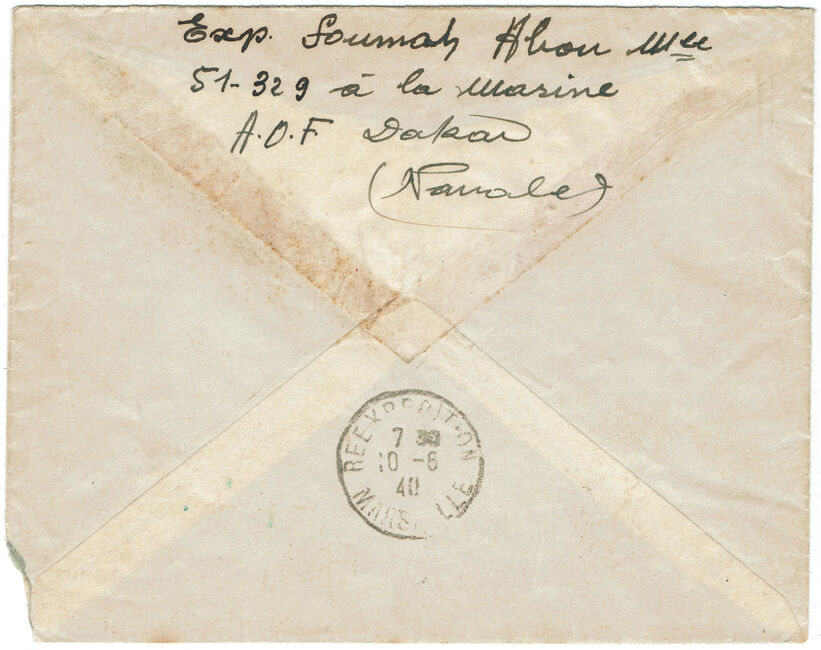 Exp. Soumah Abou Mle
51-329 à la Marine
A.O.F Dakar
(Navale)
REEXPEDITION
7 30
10 -6
40
MARSEILLE